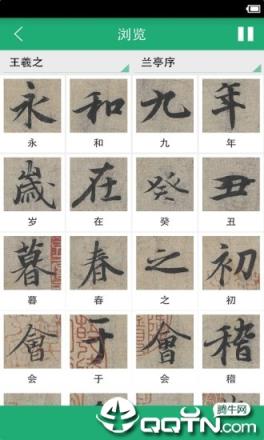 浏览
王羲之 兰亭序
永 和 九 年
永 和 九 年
歲 在 癸 丑
岁 在 癸 丑
暮 春 之 初
暮 春 之 初
會 于 會 稽
会 于 会 稽
腾牛网
QQTN.COM